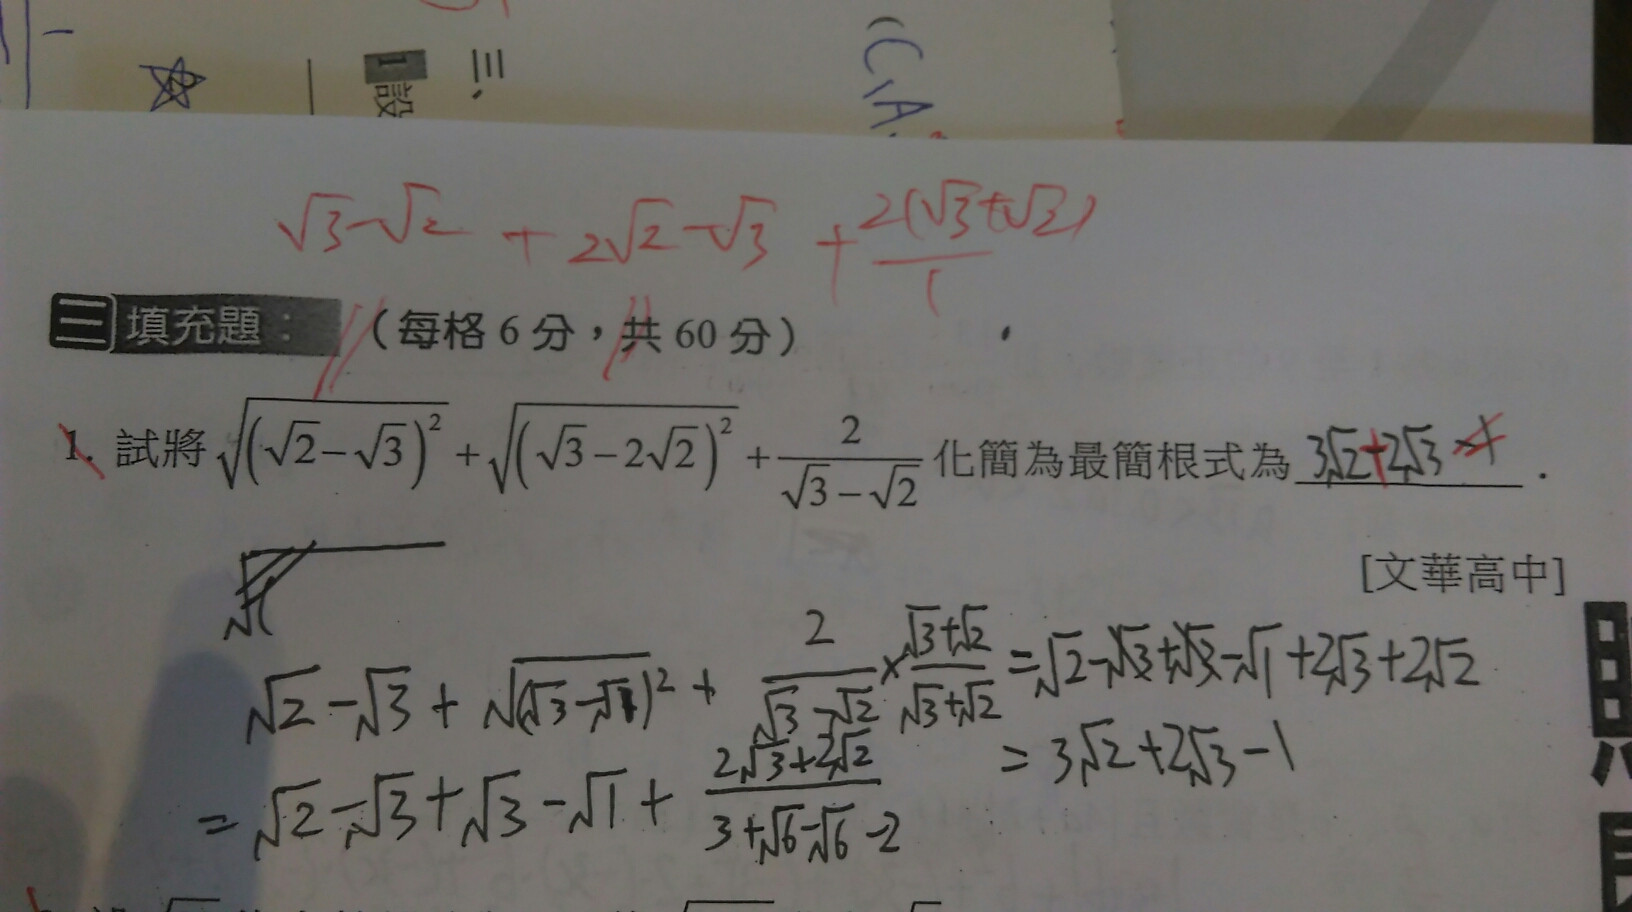 三、
1 設
(C,A.
√3-√2 + 2√2-√3 + 2(√3+√2)/1
三 填充題： （每格 6 分，共 60 分）
1. 試將 √((√2-√3)^2) + √((√3-2√2)^2) + 2/(√3-√2) 化簡為最簡根式為 3√2+2√3-1 .
[文華高中]
√2-√3+√(√3-√1)^2 + 2/(√3-√2) × (√3+√2)/(√3+√2) = √2-√3+√3-√1+2√3+2√2
= √2-√3+√3-√1+ (2√3+2√2)/(3+√6-√6-2)
= 3√2+2√3-1